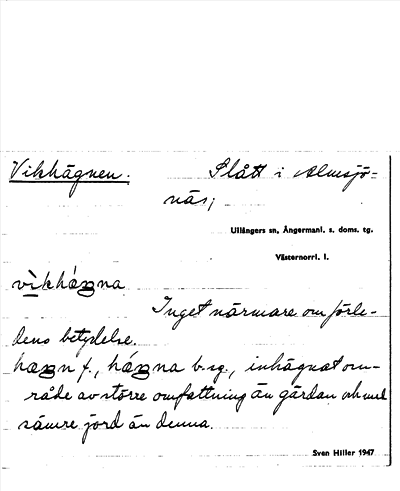 Vikhägnen.
Slått i Almsjö-
näs;
Ullångers sn, Ångermanl. s. doms. tg.
Västernorrl. l.
vìkháŋna
Inget närmare om förle-
dens betydelse.
hæŋn f., háŋna b. sg., inhägnat om-
råde av större omfattning än gärdan och med
sämre jord än denna.
Sven Hiller 1947